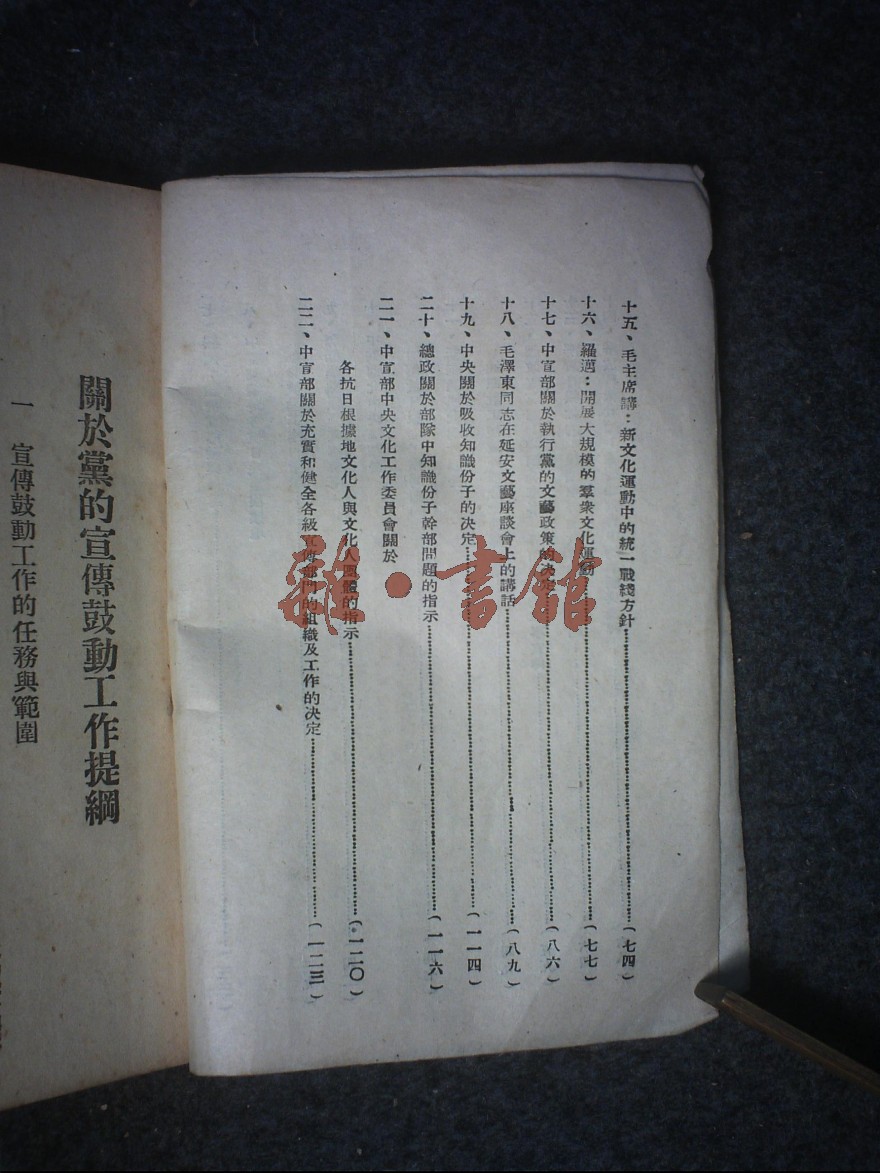 十五、毛主席講：新文化運動中的統一戰綫方針……（七四）
十六、羅邁：開展大規模的羣衆文化運動……（七七）
十七、中宣部關於執行黨的文藝政策的決定……（八六）
十八、毛澤東同志在延安文藝座談會上的講話……（八九）
十九、中央關於吸收知識份子的决定……（一一四）
二十、總政關於部隊中知識份子幹部問題的指示……（一一六）
二一、中宣部中央文化工作委員會關於
各抗日根據地文化人與文化人團體的指示……（一二〇）
二二、中宣部關於充實和健全各級宣傳部門的組織及工作的决定……（一二三）
關於黨的宣傳鼓動工作提綱
一　宣傳鼓動工作的任務與範圍
書·館